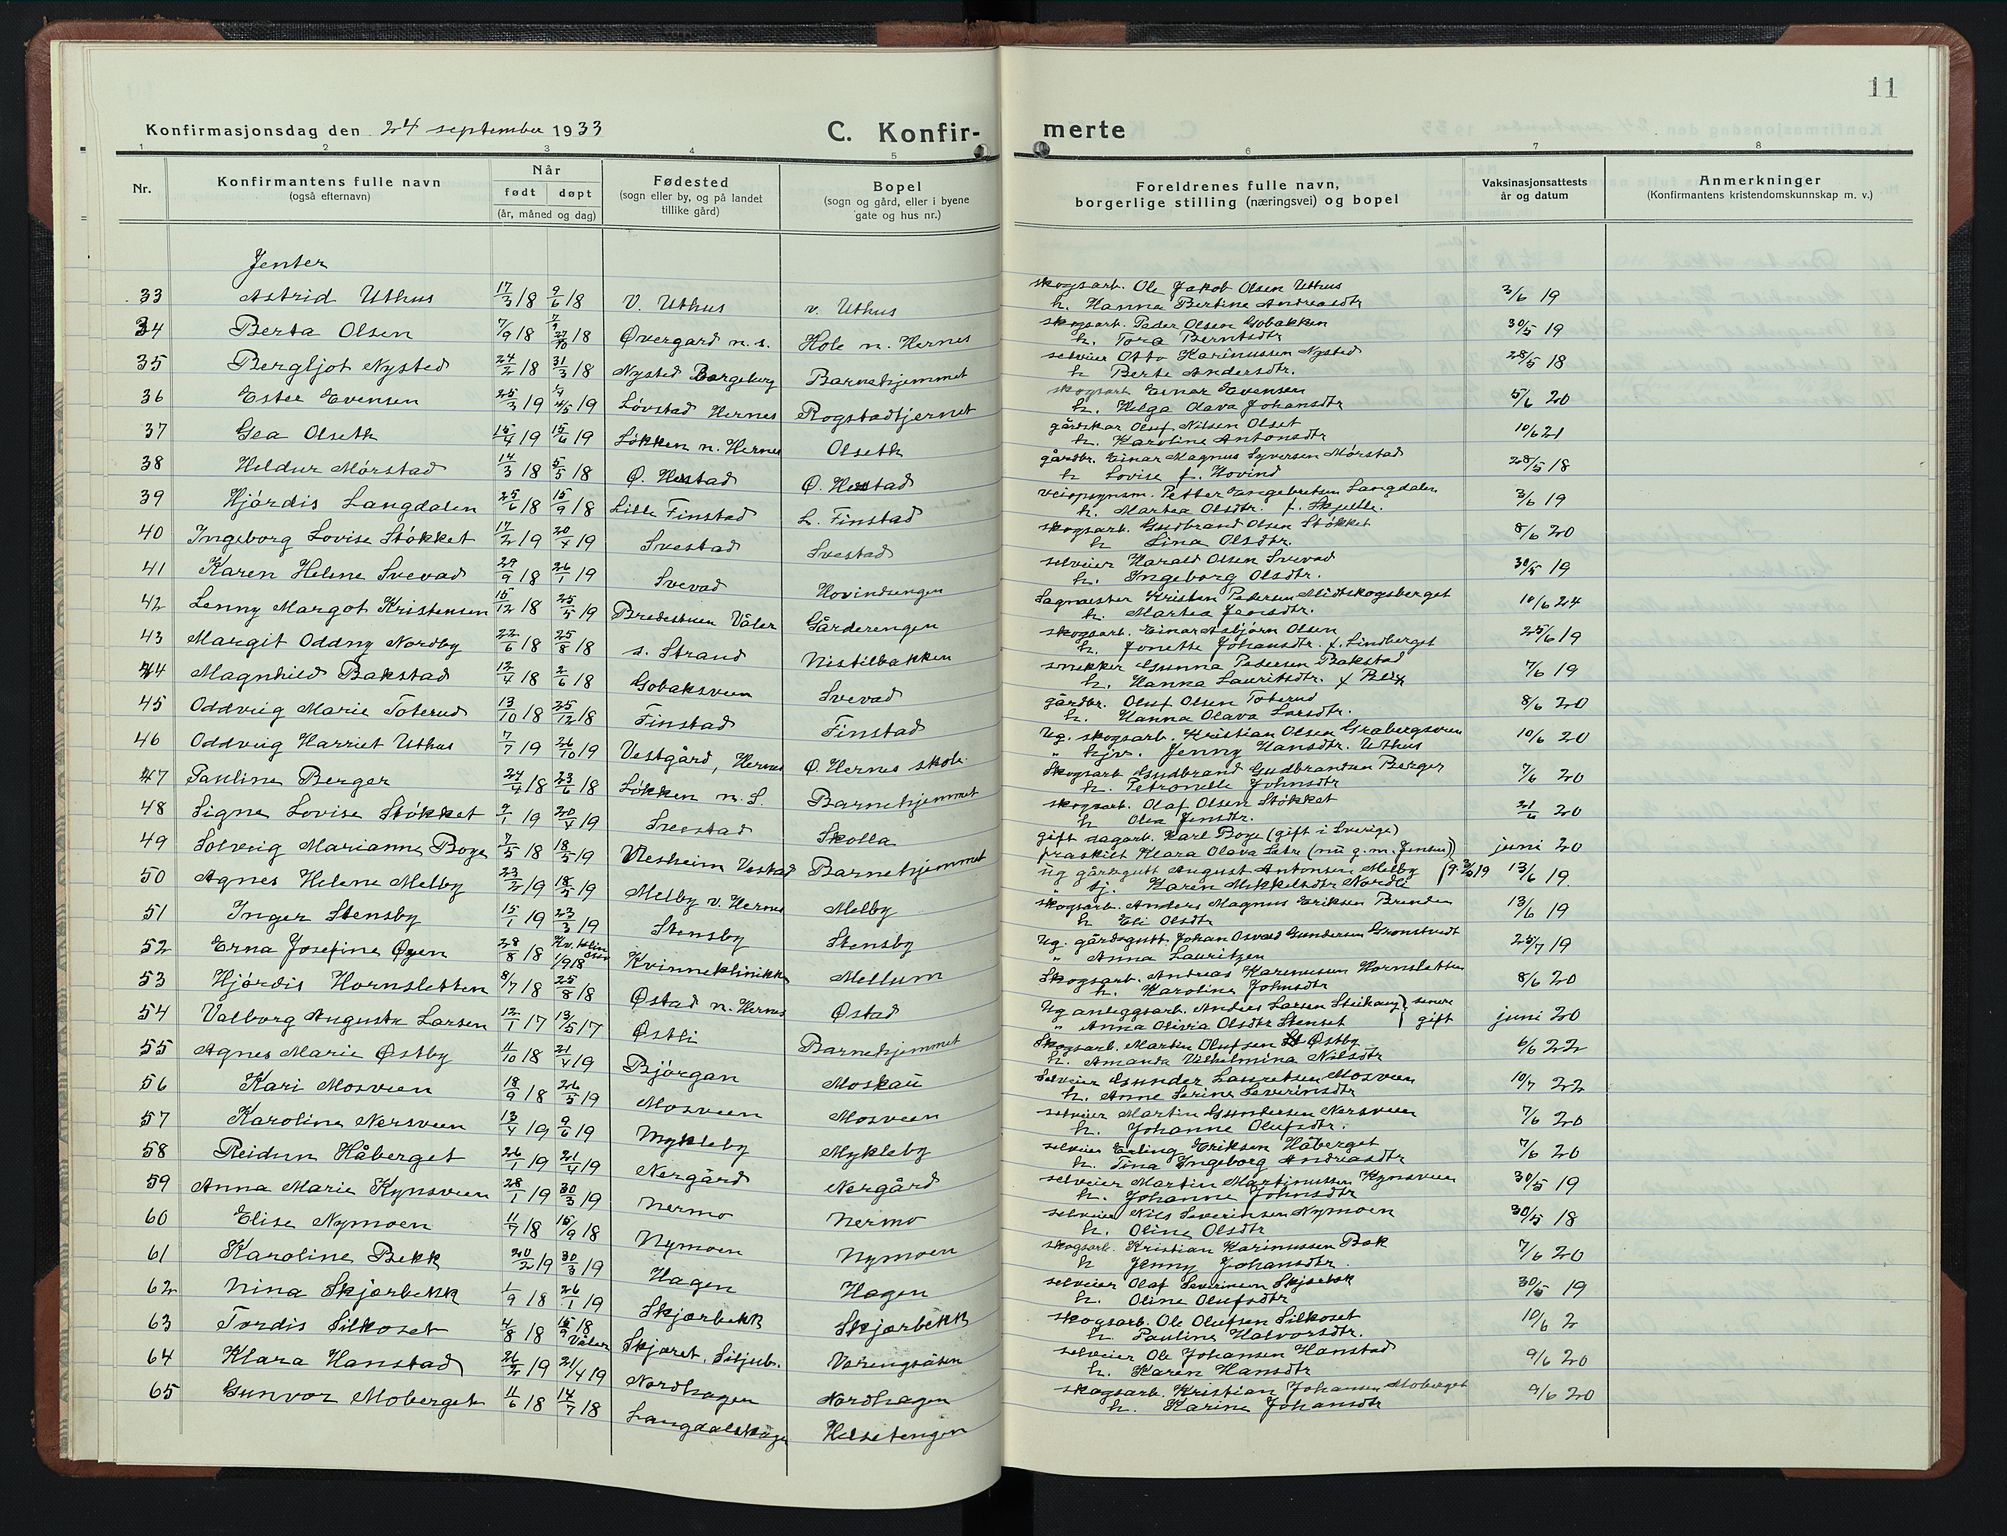 11
Konfirmasjonsdag den 24 september 1933
C. Konfir-merte
1 2 3 4 5 6 7 8
Nr. Konfirmantens fulle navn (også efternavn) Når født døpt (år, måned og dag) Fødested (sogn eller by, og på landet tillike gård) Bopel (sogn og gård, eller i byene gate og hus nr.) Foreldrenes fulle navn, borgerlige stilling (næringsvei) og bopel Vaksinasjonsattests år og datum Anmerkninger (Konfirmantens kristendomskunnskap m. v.)
Jenter
33 Astrid Uthus 17/3 18 9/6 18 V. Uthus v. Uthus skogsarb. Ole Jakob Olsen Uthus 3/6 19
h. Hanna Bertine Andreasdtr
34 Berta Olsen 7/9 18 27/10 18 Øvergard n. s. Hole n. Hernes skogsarb. Peder Olsen Gobakken 30/5 19
h. Tora Berntsdtr.
35 Bergljot Nysted 24/2 18 31/3 18 Nysted Borgeberg Barnehjemmet selveier Otto Karinussen Nysted 28/5 18
h Berte Andersdtr.
36 Ester Evensen 25/3 19 4/5 19 Løvstad Hernes Rogstadtjernet skogsarb Einar Evensen 5/6 20
h. Helga Olava Johansdtr
37 Gea Olseth 15/4 19 15/6 19 Løkken n. Hernes Olseth gårdskar Oluf Nilsen Olset 10/6 21
h. Karoline Antonsdtr
38 Heldur Mørstad 14/3 18 5/5 18 Ø. Hestad Ø. Hestad gårdbr. Einar Magnus Syversen Mørstad 28/5 18
h Lovise f. Hovind
39 Hjørdis Langdalen 25/6 18 15/9 18 Lille Finstad L. Finstad veiopsynsm. Petter Engebretsen Langdalen 3/6 19
h. Martea Olsdtr. f. Skjelle.
40 Ingeborg Lovise Støkket 17/2 19 20/4 19 Svestad Svestad skogsarb. Gudbrand Olsen Støkket 8/6 20
h Lina Olsdtr.
41 Karen Helene Svevad 29/9 18 26/1 19 Svevad Hovindsengen selveier Harald Olsen Svevad 30/5 19
h. Ingeborg Olsdtr.
42 Lenny Margot Kristensen 15/12 18 25/5 19 Bredestuen Våler Gårderengen Sagmester Kristen Pedersen Midtskogsberget 10/6 24
h. Martea Jensdtr.
43 Margit Oddny Nordby 22/6 18 25/8 18 s. Strand Nistilbakken skogsarb. Einar Asbjørn Olsen 25/6 19
h. Jonette Johansdtr. f. Lindberget
44 Magnhild Bakstad 12/4 18 2/6 18 Gobaksveen Svevad snekker Gunna Pedersen Bakstad 7/6 19
h. Hanna Lauritsdtr. f Berg
45 Oddveig Marie Toterud 13/10 18 25/12 18 Finstad Finstad gårdbr. Oluf Olsen Toterud 8/6 20
h. Hanna Olava Larsdtr.
46 Oddveig Harriet Uthus 7/7 19 26/10 19 Vestgård, Hernes Ø. Hernes skole. Ug. skogsarb. Kristian Olsen Grabergsveen 10/6 20
" hjv. Jenny Hansdtr. Uthus
47 Pauline Berger 24/4 18 23/6 18 Løkken n. S. Barnehjemmet Skogsarb Gudbrand Gudbrandsen Berger 7/6 20
h. Petronelle Johnsdtr
48 Signe Lovise Støkket 9/1 19 20/4 19 Svestad Skolla skogsarb. Olaf Olsen Støkket 21/6 20
h Olea Jensdtr.
49 Solveig Marianne Boge 7/5 18 18/5 19 Vlesheim Vestad Barnehjemmet gift dagarb. Karl Boge (gift i Sverige) juni 20
fraskilt Klara Olava (nu g. m. Jensen)
50 Agnes Helene Melby 23/2 19 18/5 19 Melby v. Hernes Melby Ug gårdsgutt August Antonsen Melby 13/6 19.
" tj. Karen Mikkelsdtr Nordli
51 Inger Stensby 15/1 19 23/3 19 Stensby Stensby skogsarb. Anders Magnus Eriksen Brenden 13/6 19
h Eli Olsdtr
52 Erna Josefine Øyen 28/8 18 Kv. klin 1/9 18 Kvinneklinikken Mellum Ug. gårdsgutt Johan Osvald Gundersen Grønstvedt 25/7 19
" Anna Lauritzen
53 Hjørdis Hornsletten 8/7 18 25/8 18 Østad n. Hernes Østad Skogsarb. Andreas Karenusen Hornsletten 8/6 20
h. Karoline Johnsdtr
54 Valborg Augusta Larsen 12/1 17 13/5 17 Østli Barnehjemmet Ug anleggsarb. Anders Larsen senere juni 20
" Anna Olivia Olsdtr Stenset gift
55 Agnes Marie Østby 11/10 18 21/4 19 Bjørgan Moskau Skogsarb. Martin Olufsen Østby 6/6 22
h. Amanda Vilhelmina Nilsdtr
56 Kari Mosveen 18/9 18 26/5 19 Mosveen Mosveen Selveier Gunder Lauretsen Mosveen 10/7 22
h. Anne Serine Severinsdtr.
57 Karoline Nersveen 13/4 19 9/6 19 Mykleby Mykleby selveier Martin Gundersen Nersveen 7/6 20
h. Johanne Olufsdtr.
58 Reidun Håberget 26/1 19 21/4 19 Nergård Nergård selveier Erling Eriksen Håberget 7/6 20
h. Tina Ingeborg Andreasdtr
59 Anna Marie Kynsveen 28/1 19 30/3 19 Nermo Nermo selveier Martin Martinussen Kynsveen 30/5 19
h. Johanne Johnsdtr
60 Elise Nymoen 11/7 18 15/9 18 Nymoen Nymoen selveier Nils Severinsen Nymoen 30/5 18
h. Oline Olsdtr
61 Karoline Bekk 20/2 19 30/3 19 Hagen Hagen skogsarb. Kristian Karinussen Bæk 7/6 20
h Jenny Johansdtr.
62 Nina Skjærbekk 1/9 18 26/1 19 Skjærbekk Skjærbekk selveier Olaf Severinsen Skjærbæk 30/5 19
h. Oline Olufsdtr
63 Tordis Silkoset 4/8 18 15/9 18 Våler Skjæret, Siljub. Vorengsåsen skogsarb. Ole Olufsen Silkoset 10/6 2
h. Pauline Halvorsdtr.
64 Klara Hanstad 26/2 19 21/4 19 Nordhagen Nordhagen selveier Ole Johansen Hanstad 9/6 20
h. Karen Hansdtr
65 Gunvor Moberget 11/6 18 14/7 18 Langdalshagen Helsetengen skogsarb. Kristian Johansen Moberget 9/6 20
h. Karine Johansdtr